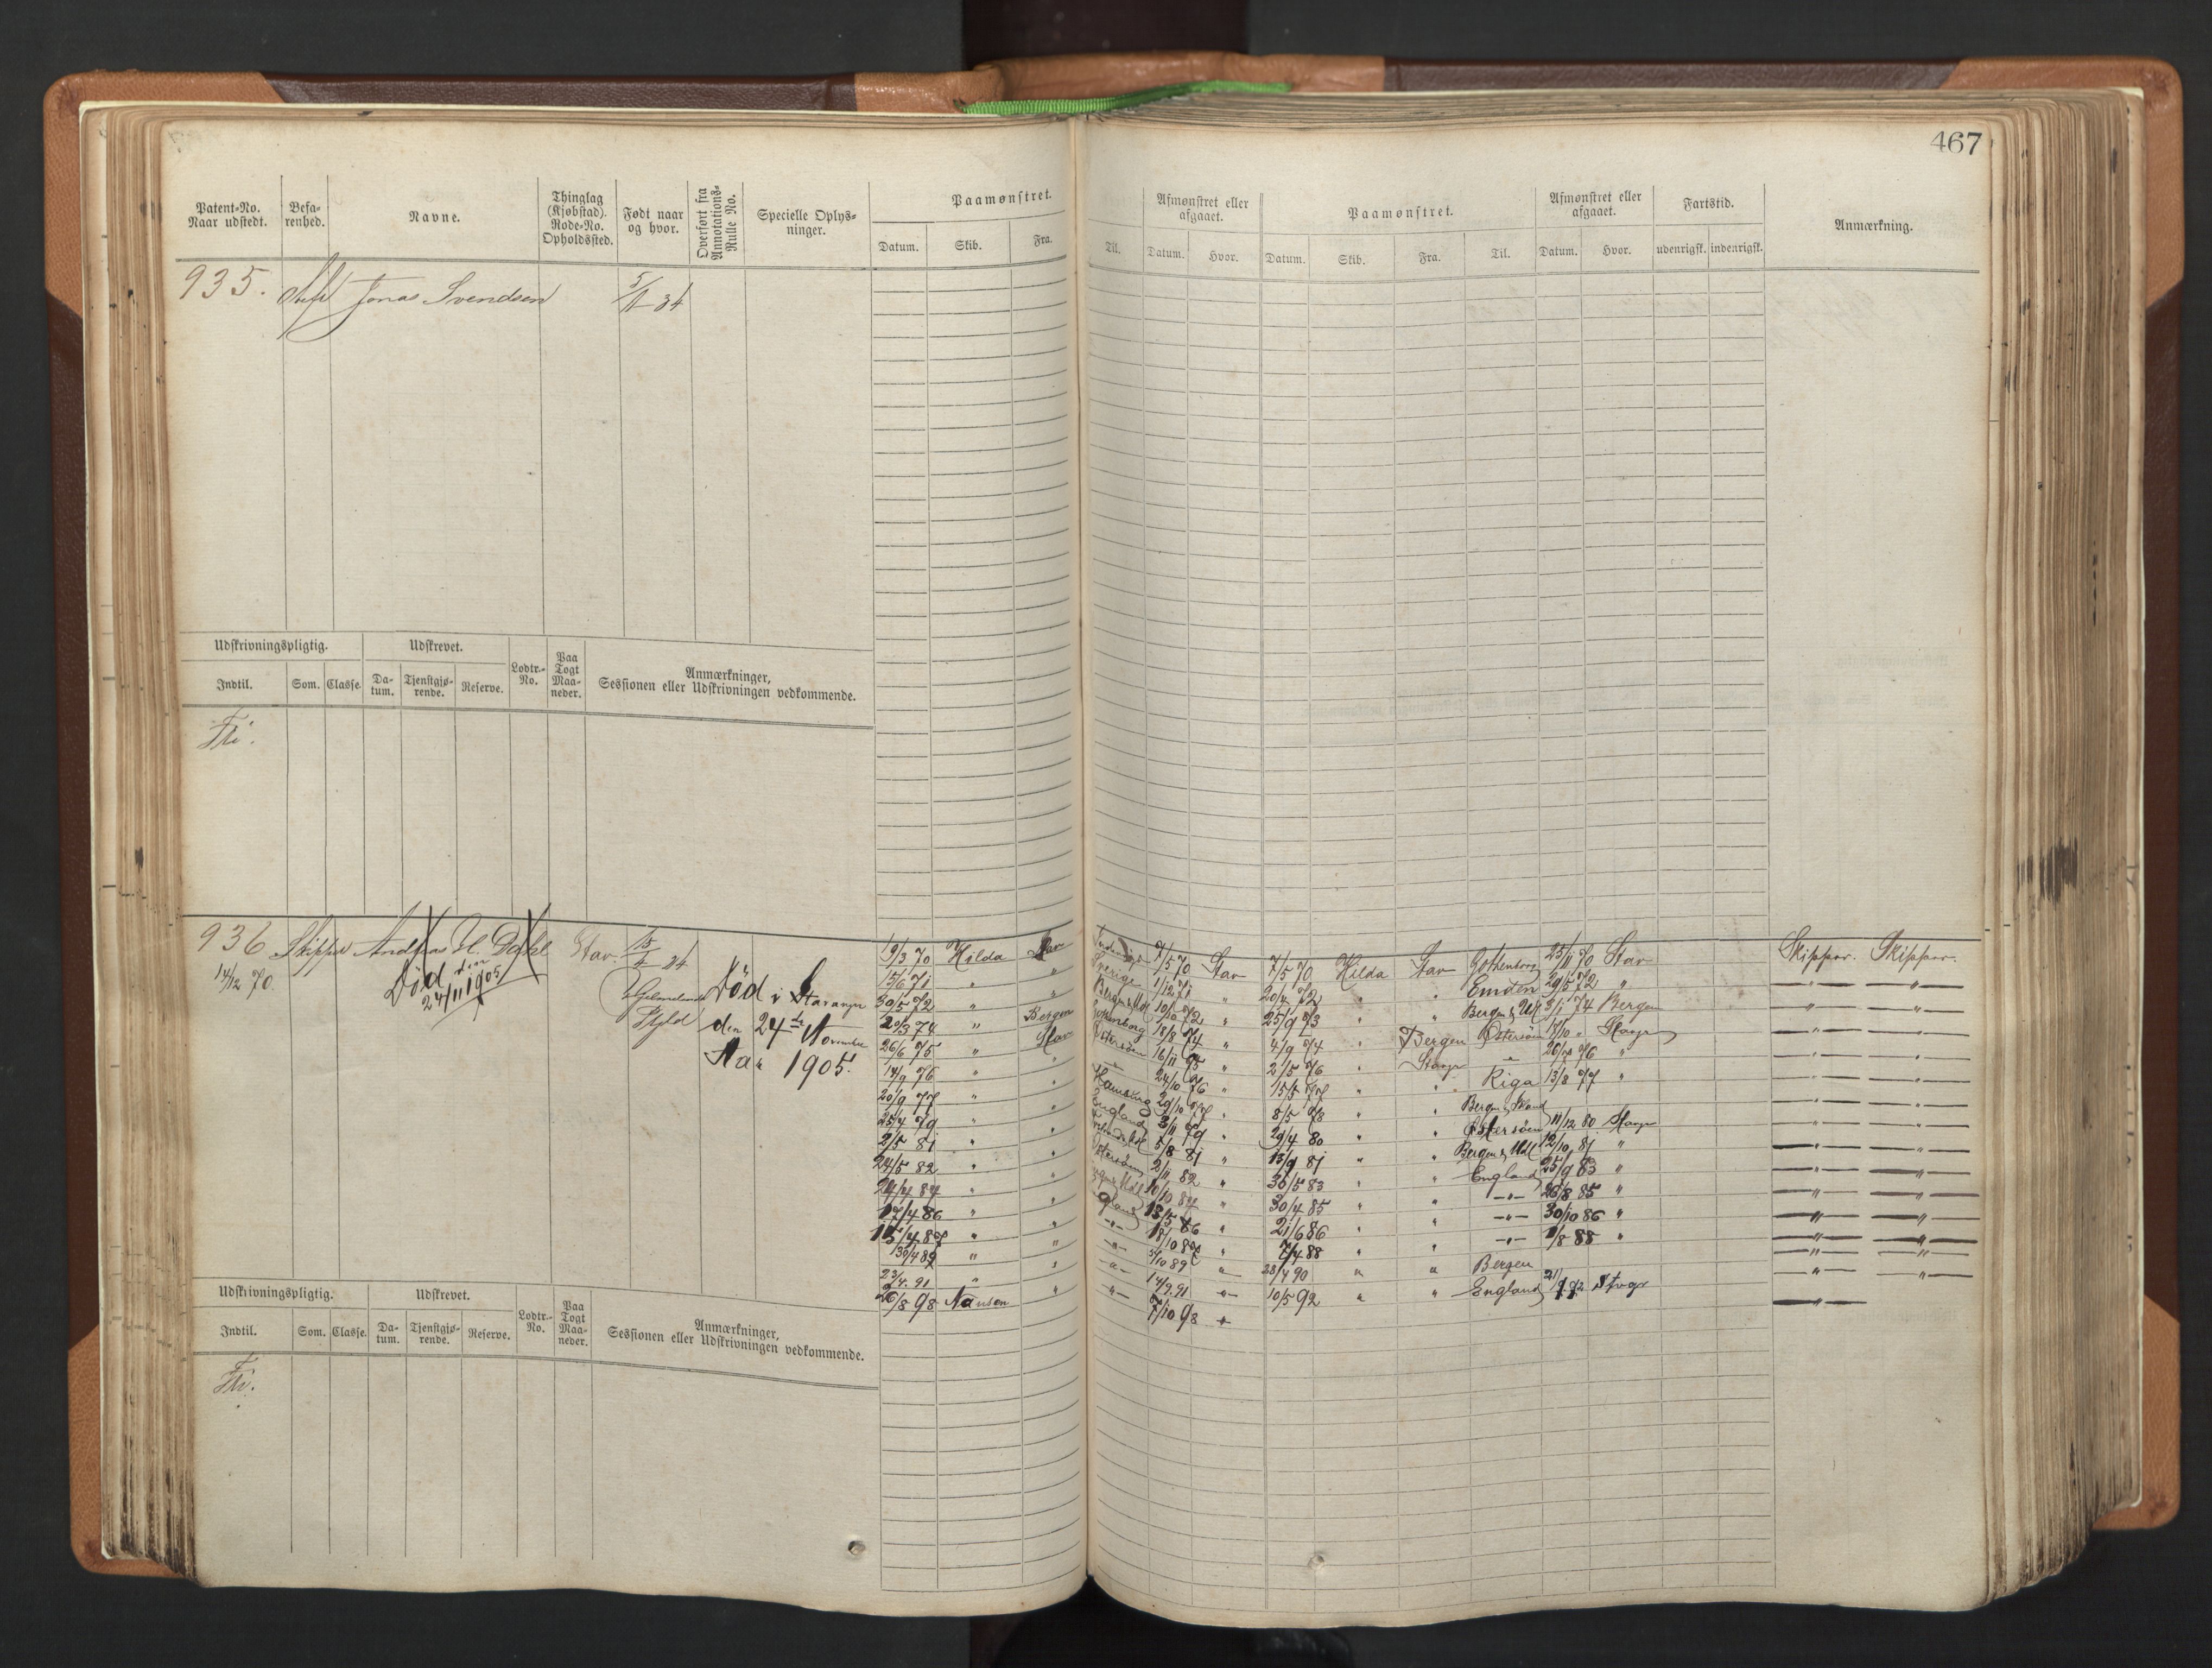 467
Patent-No. Naar udstedt.
Befa-renhed.
Navne.
Thinglag (Kjøbstad). Rode-No. Opholdssted.
Født naar og hvor.
Overført fra Annotations-Rulle No.
Specielle Oplys-ninger.
Paamønstret.
Datum. Skib. Fra.
Til.
Afmønstret eller afgaaet.
Datum. Hvor.
Paamønstret.
Datum. Skib. Fra. Til.
Afmønstret eller afgaaet.
Datum. Hvor.
Fartstid.
udenrigsk. indenrigsk.
Anmærkning.
935. Jonas Svendsen
Udskrivningspligtig. Udskrevet. Lodtr.-No. Paa Togt Maa-neder. Anmærkninger, Sessionen eller Udskrivningen vedkommende.
Indtil. Som. Classe. Da-tum. Tjenstgjø-rende. Reserve.
Fri.
936 Skipper Andreas H Dahl Stav. 15/4 24
14/12 70.
Død den 24/11 1905
Død i Stavanger
den 24de November
Aar 1905.
19/3 70 Hilda Stav 7/5 70 Stav 7/5 70 Hilda Stav Gothenborg 25/11 70 Stav Skipper. Skipper.
15/6 71 " " Sverige 1/12 71 " 20/4 72 " " Emden 29/5 72 " —"— —"—
30/5 72 " " Bergen & Udl 10/10 72 " 25/9 73 " " Bergen & Udl 3/1 74 Bergen " "
20/3 74 " Bergen 18/8 74 " 4/9 74 " Bergen Østersøen 13/10 " Stavgr
26/6 75 " Stav Østersøen 16/11 75 " 2/5 76 " Stavgr " 76 "
14/9 76 " " " 24/10 76 " 15/5 77 " " Riga 13/8 77 "
20/9 77 " " Hamburg 29/10 77 " 8/5 78 " " Bergen
25/4 79 " " England 3/11 79 " 29/4 80 " " Østersøen 11/12 80 Stavgr
2/5 81 " " 5/8 81 " 13/9 81 " " Bergen & Udl 12/10 81 "
24/5 82 " " Østersøen 2/11 82 " 30/5 83 " " England 25/9 83 "
84 " " 10/10 84 " 30/4 85 " " —"— 26/8 85 "
17/4 86 " " 86 " 21/6 86 " " —"— 30/10 86 "
15/4 87 " " —"— 18/10 87 " 7/4 88 " " —"— 1/8 88 "
30/4 89 " " —"— 5/10 89 " 28/4 90 " " Bergen
23/4. 91 " " —"— 14/9. 91 " 10/5 92 " " England 92 Stvgr
26/8 98 Nansen " —"— 7/10 98 "
Udskrivningspligtig. Udskrevet. Lodtr.-No. Paa Togt Maa-neder. Anmærkninger, Sessionen eller Udskrivningen vedkommende.
Indtil. Som. Classe. Da-tum. Tjenstgjø-rende. Reserve.
Fri.